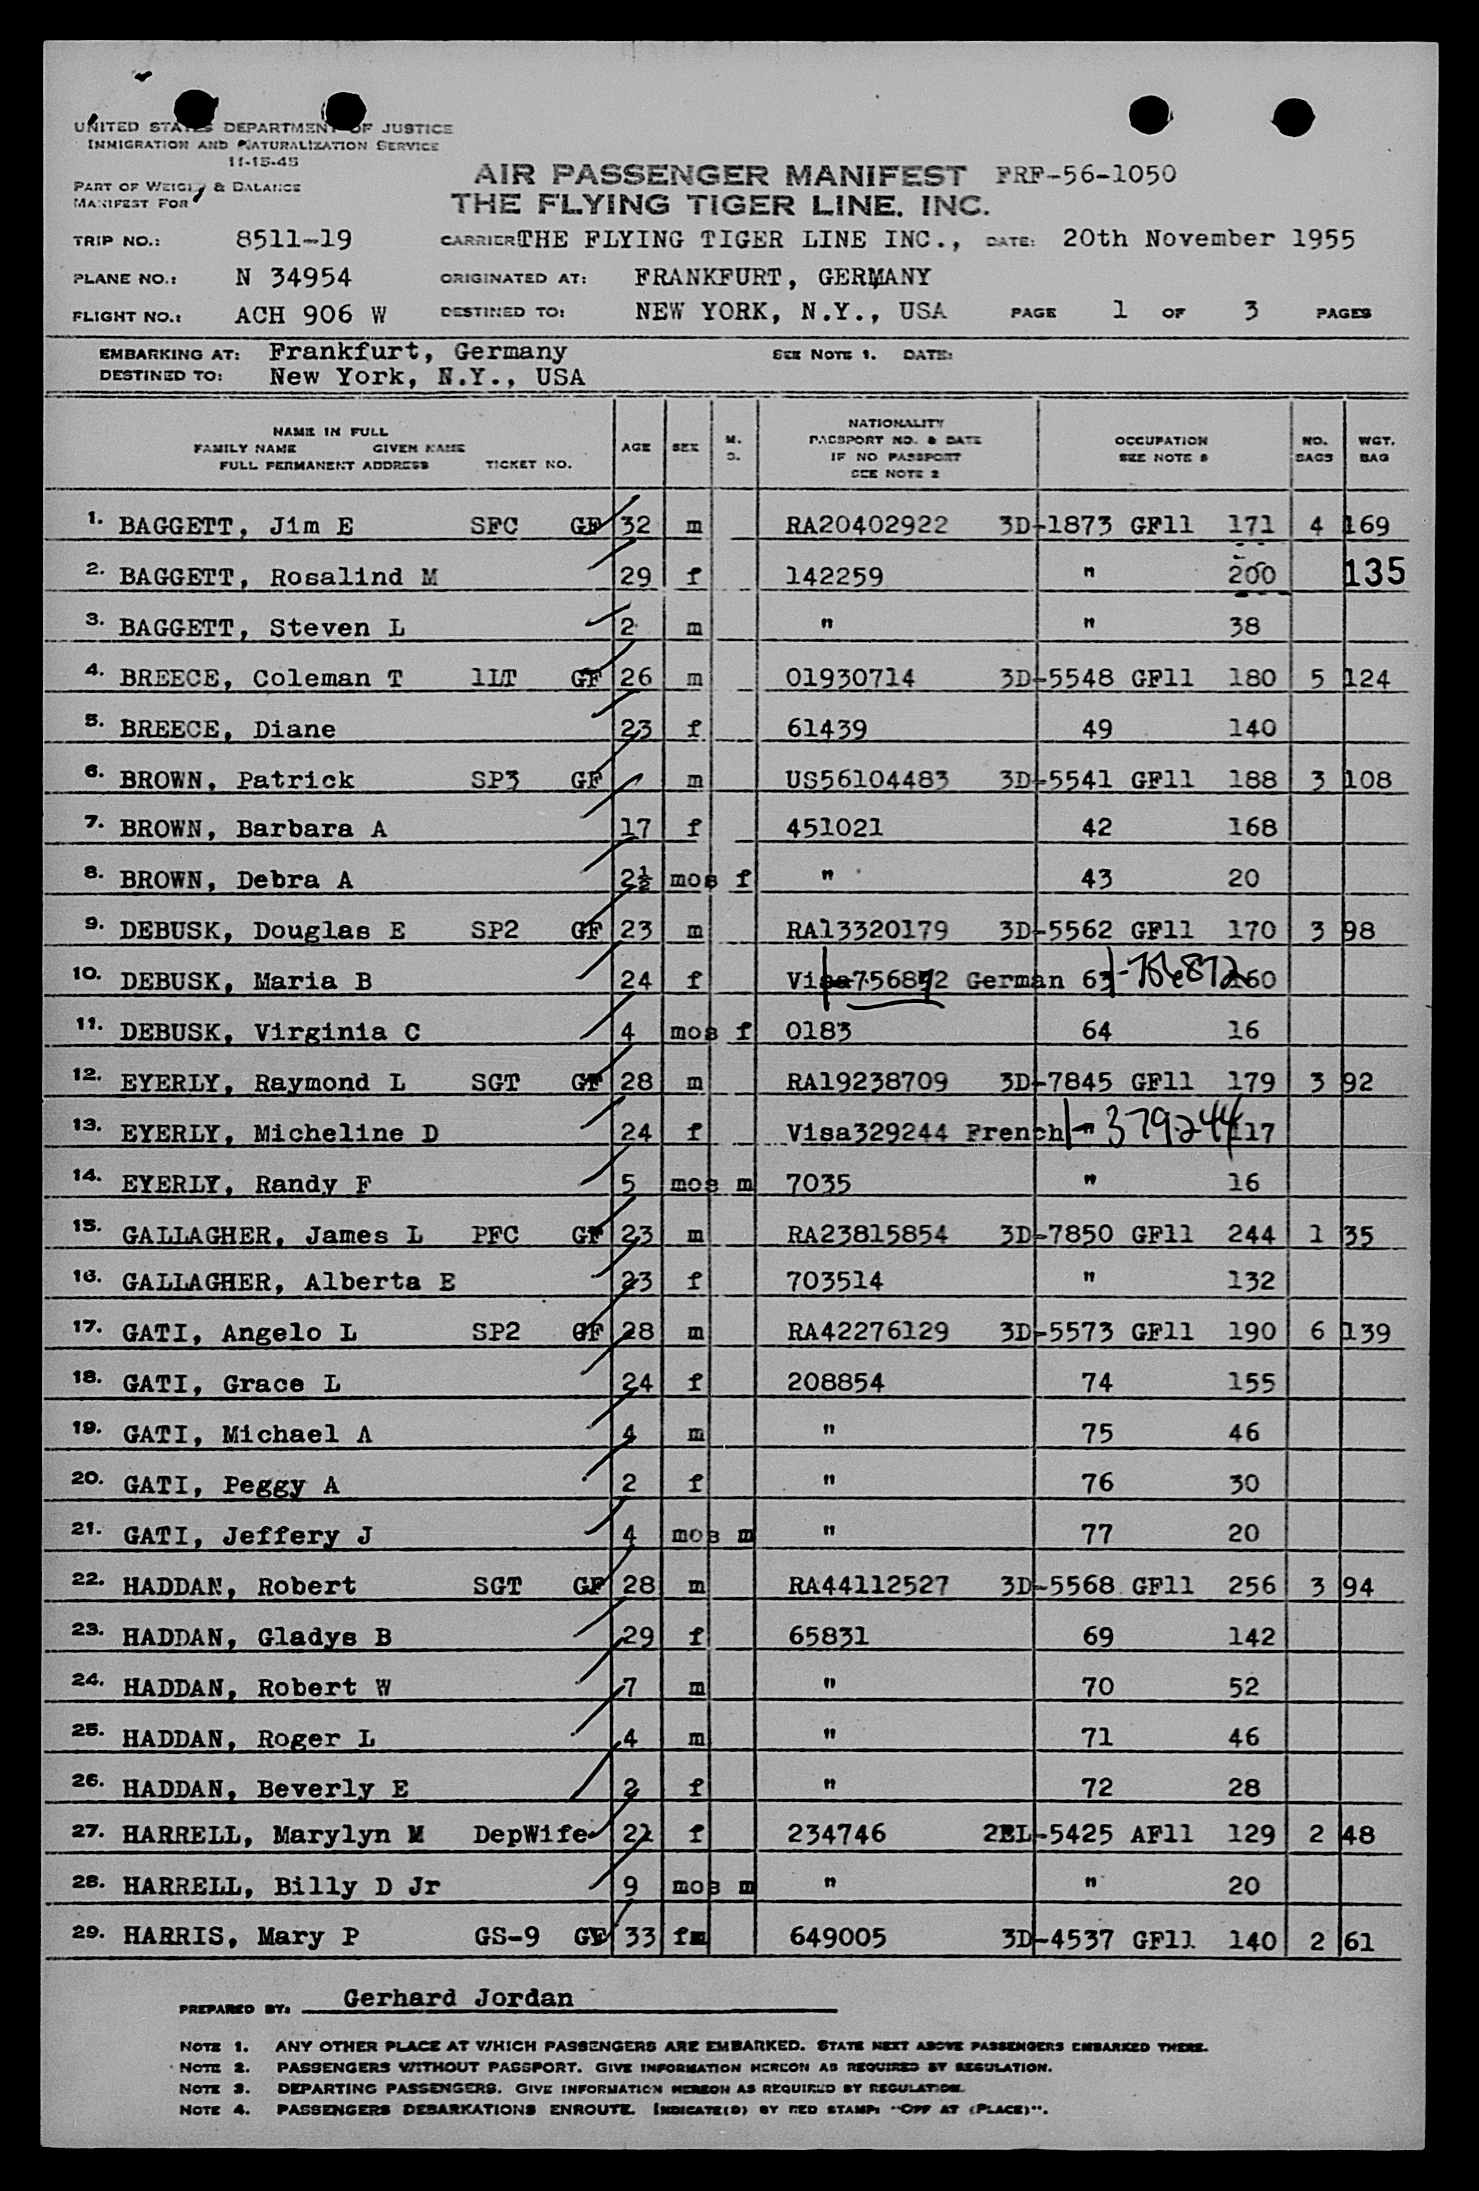 UNITED STATES DEPARTMENT OF JUSTICE
IMMIGRATION AND NATURALIZATION SERVICE
11-15-45
PART OF WEIGHT & BALANCE
MANIFEST FOR
AIR PASSENGER MANIFEST FRF-56-1050
THE FLYING TIGER LINE. INC.
TRIP NO.: 8511-19 CARRIER THE FLYING TIGER LINE INC., DATE: 20th November 1955
PLANE NO.: N 34954 ORIGINATED AT: FRANKFURT, GERMANY
FLIGHT NO.: ACH 906 W DESTINED TO: NEW YORK, N.Y., USA PAGE 1 OF 3 PAGES
EMBARKING AT: Frankfurt, Germany SEE NOTE 1. DATE:
DESTINED TO: New York, N.Y., USA
NAME IN FULL
FAMILY NAME GIVEN NAME
FULL PERMANENT ADDRESS TICKET NO.
AGE SEX M. S.
NATIONALITY
PASSPORT NO. & DATE
IF NO PASSPORT
SEE NOTE 2
OCCUPATION
SEE NOTE 3
NO. BAGS
WGT. BAG
1. BAGGETT, Jim E SFC GF 32 m RA20402922 3D-1873 GF11 171 4 169
2. BAGGETT, Rosalind M 29 f 142259 " 200 135
3. BAGGETT, Steven L 2 m " " 38
4. BREECE, Coleman T 1LT GF 26 m 01930714 3D-5548 GF11 180 5 124
5. BREECE, Diane 23 f 61439 49 140
6. BROWN, Patrick SP3 GF m US56104483 3D-5541 GF11 188 3 108
7. BROWN, Barbara A 17 f 451021 42 168
8. BROWN, Debra A 2½ mos f " 43 20
9. DEBUSK, Douglas E SP2 GF 23 m RA13320179 3D-5562 GF11 170 3 98
10. DEBUSK, Maria B 24 f Visa756872 German 63 I-756872 160
11. DEBUSK, Virginia C 4 mos f 0183 64 16
12. EYERLY, Raymond L SGT GF 28 m RA19238709 3D-7845 GF11 179 3 92
13. EYERLY, Micheline D 24 f Visa329244 French " I-379244 117
14. EYERLY, Randy F 5 mos m 7035 " 16
15. GALLAGHER, James L PFC GF 23 m RA23815854 3D-7850 GF11 244 1 35
16. GALLAGHER, Alberta E 23 f 703514 " 132
17. GATI, Angelo L SP2 GF 28 m RA42276129 3D-5573 GF11 190 6 139
18. GATI, Grace L 24 f 208854 74 155
19. GATI, Michael A 4 m " 75 46
20. GATI, Peggy A 2 f " 76 30
21. GATI, Jeffery J 4 mos m " 77 20
22. HADDAN, Robert SGT GF 28 m RA44112527 3D-5568 GF11 256 3 94
23. HADDAN, Gladys B 29 f 65831 69 142
24. HADDAN, Robert W 7 m " 70 52
25. HADDAN, Roger L 4 m " 71 46
26. HADDAN, Beverly E 2 f " 72 28
27. HARRELL, Marylyn M DepWife 21 f 234746 2EL-5425 AF11 129 2 48
28. HARRELL, Billy D Jr 9 mos m " " 20
29. HARRIS, Mary P GS-9 GF 33 fm 649005 3D-4537 GF11 140 2 61
PREPARED BY: Gerhard Jordan
NOTE 1. ANY OTHER PLACE AT WHICH PASSENGERS ARE EMBARKED. STATE NEXT ABOVE PASSENGERS EMBARKED THERE.
NOTE 2. PASSENGERS WITHOUT PASSPORT. GIVE INFORMATION HEREON AS REQUIRED BY REGULATION.
NOTE 3. DEPARTING PASSENGERS. GIVE INFORMATION HEREON AS REQUIRED BY REGULATION.
NOTE 4. PASSENGERS DEBARKATIONS ENROUTE. INDICATE(D) BY RED STAMP: "OFF AT (PLACE)".